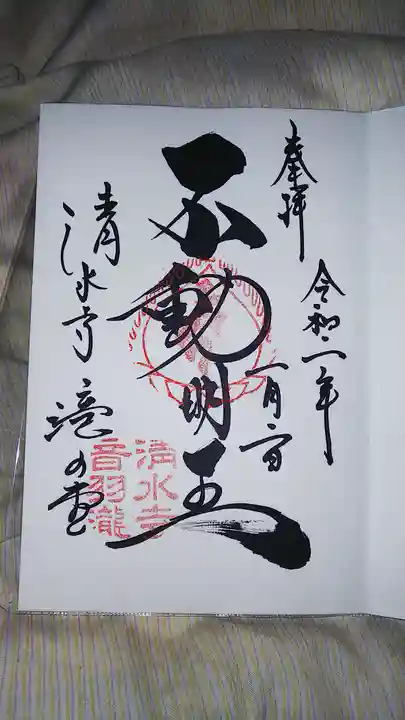 奉拝
令和二年
一月二日
不動明王
清水寺 滝の堂
清水寺
音羽瀧